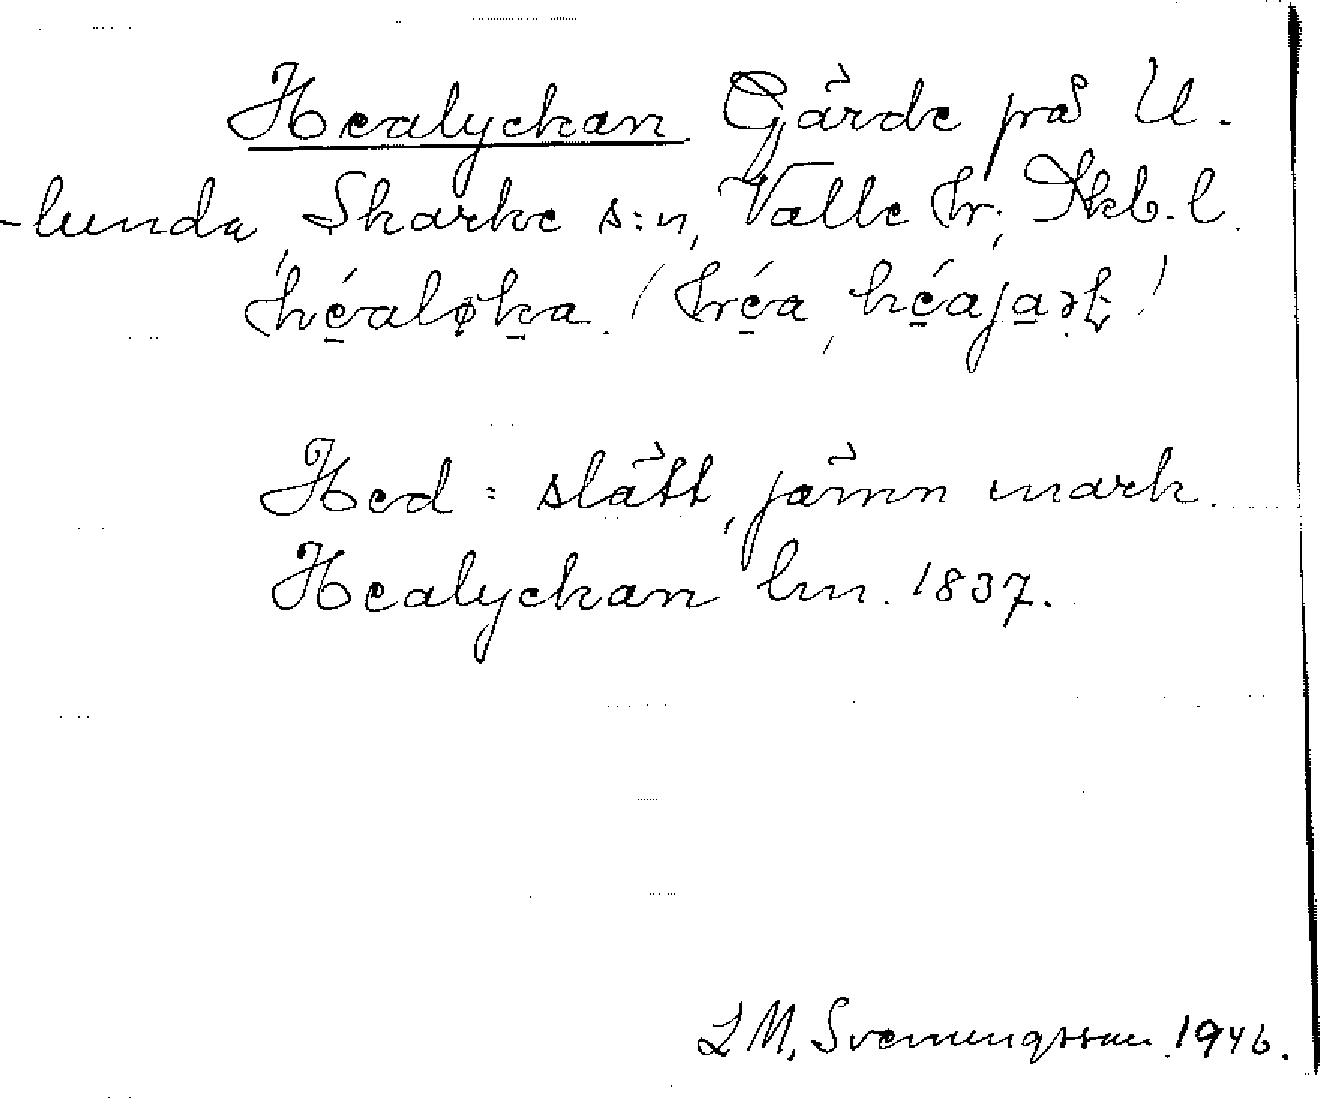 Healyckan. Gärde på U-
-lunda, Skärke s:n, Valle hr, Skb. l.
héaløka. (héa, héajaṛḍ)
Hed = slätt, jämn mark.
Healyckan lm. 1837.
L M. Svenungsson. 1946.